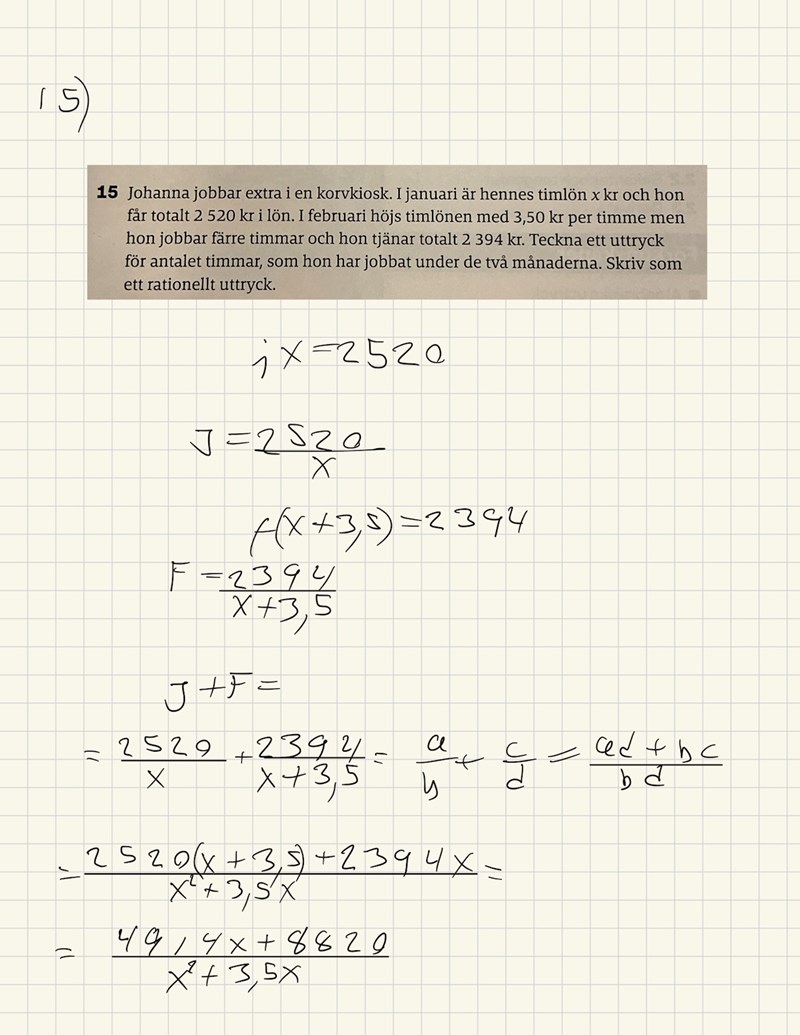 15)
15 Johanna jobbar extra i en korvkiosk. I januari är hennes timlön x kr och hon
får totalt 2 520 kr i lön. I februari höjs timlönen med 3,50 kr per timme men
hon jobbar färre timmar och hon tjänar totalt 2 394 kr. Teckna ett uttryck
för antalet timmar, som hon har jobbat under de två månaderna. Skriv som
ett rationellt uttryck.
jx=2520
J = 2520/x
f(x+3,5)=2394
F = 2394/x+3,5
J+F=
= 2520/x + 2394/x+3,5 = a/b + c/d = ad+bc/bd
= 2520(x+3,5)+2394x/x²+3,5x =
= 4914x+8820/x²+3,5x